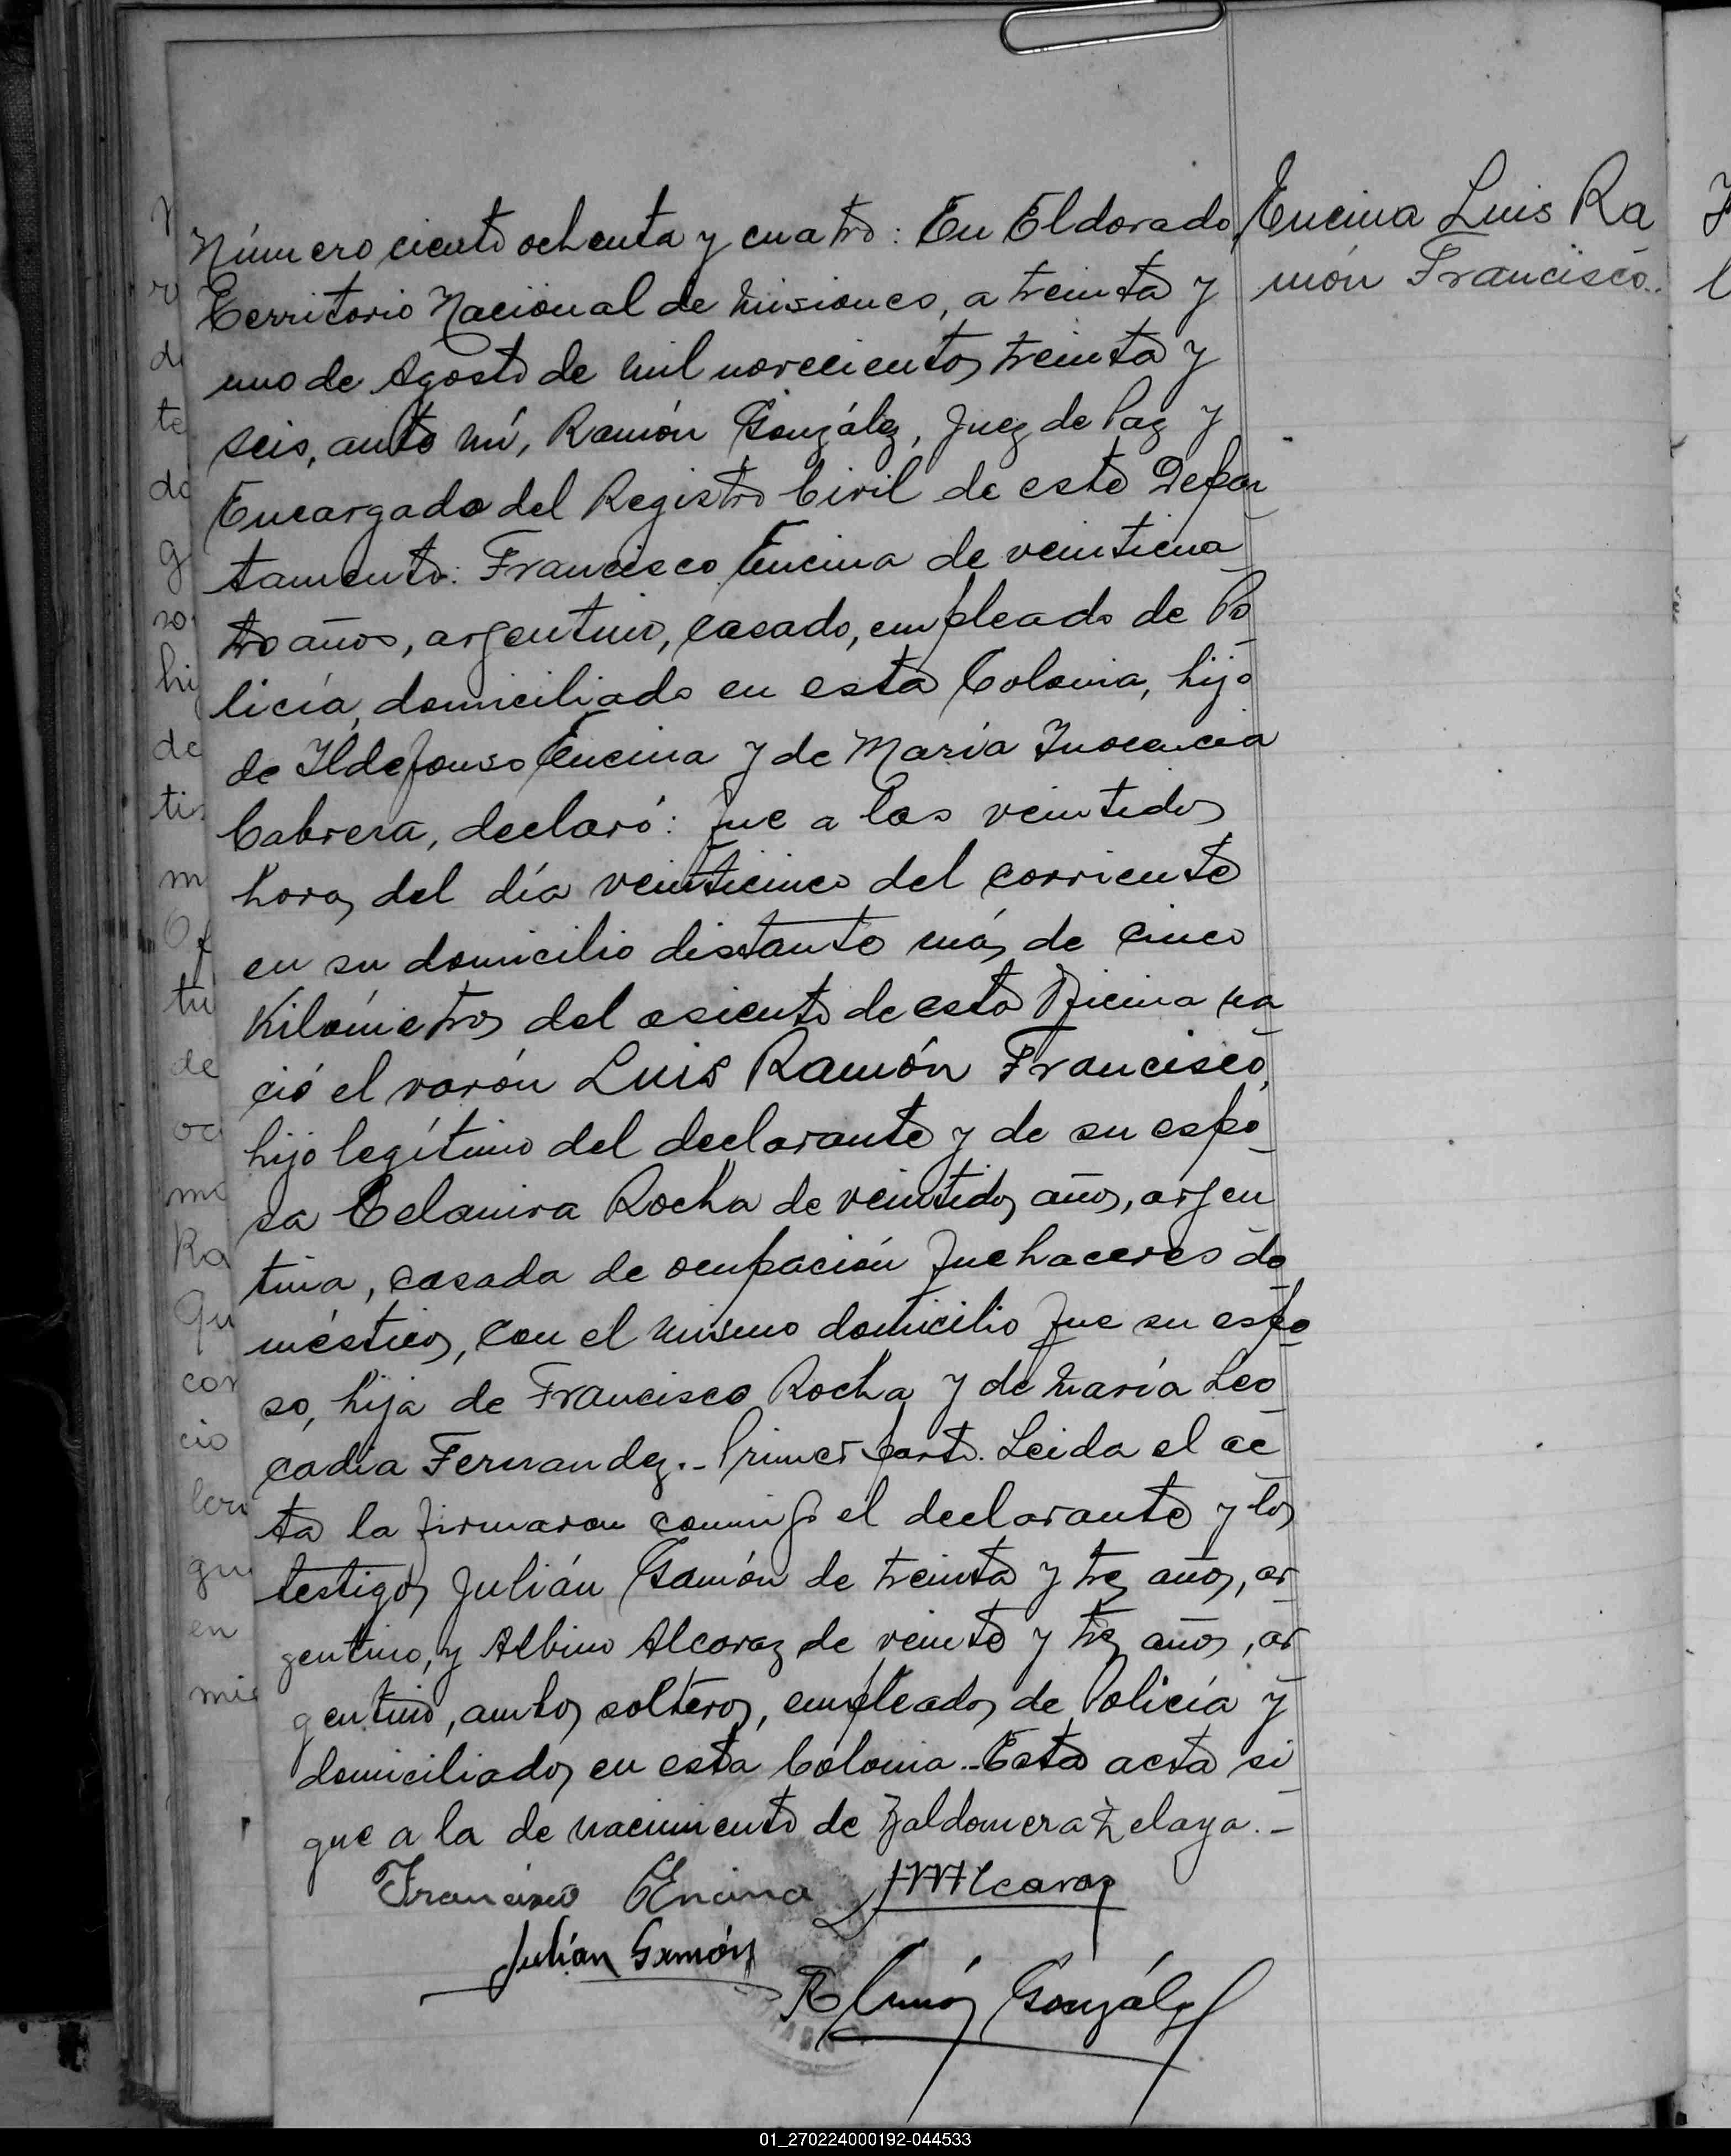 Número ciento ochenta y cuatro: En Eldorado
Territorio Nacional de Misiones, a treinta y
uno de Agosto de mil novecientos treinta y
seis, ante mí, Ramón González, Juez de Paz y
Encargado del Registro Civil de este Depar
tamento: Francisco Encina de veinticua
tro años, argentino, casado, empleado de Po
licía, domiciliado en esta Colonia, hijo
de Ildefonso Encina y de María Inocencia
Cabrera, declaró: Que a las veintidos
horas del día veinticinco del corriente
en su domicilio distante más de cinco
Kilómetros del asiento de esta Oficina na
ció el varón Luis Ramón Francisco,
hijo legítimo del declarante y de su espo
sa Celanira Rocha de veintidos años, argen
tina, casada de ocupación quehaceres do
mésticos, con el mismo domicilio que su espo
so, hija de Francisco Rocha y de María Leo
cadia Fernandez.- Primer parto. Leida el ac
ta la firmaron conmigo el declarante y los
testigos Julián Gamón de treinta y tres años, ar
gentino, y Albino Alcaraz de veinte y tres años, ar
gentino, ambos solteros, empleados de Policía y
domiciliados en esta Colonia.- Esta acta si
gue a la de nacimiento de Baldomera Zelaya.-
Encina Luis Ra
món Francisco.
Francisco Encina
Alcaraz
Julián Gamón
Ramón González
01_270224000192-044533